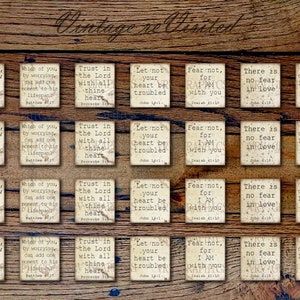 Vintage reVisited
Which of you
by worrying,
can add one
moment to his
lifespan?
Matthew 6:27
Trust in
the Lord
with all
thine
heart
Proverbs 3:5
Let not
your
heart be
troubled
John 14:1
Fear not,
for
I AM
with you
Isaiah 41:10
There is
no fear
in love
1 John 4:18
Which of you
by worrying,
can add one
moment to his
lifespan?
Matthew 6:27
Trust in
the Lord
with all
thine
heart
Proverbs 3:5
Let not
your
heart be
troubled
John 14:1
Fear not,
for
I AM
with you
Isaiah 41:10
There is
no fear
in love
1 John 4:18
Which of you
by worrying,
can add one
moment to his
lifespan?
Matthew 6:27
Trust in
the Lord
with all
thine
heart
Proverbs 3:5
Let not
your
heart be
troubled
John 14:1
Fear not,
for
I AM
with you
Isaiah 41:10
There is
no fear
in love
1 John 4:18
Which of you
by worrying,
can add one
moment to his
lifespan?
Matthew 6:27
Trust in
the Lord
with all
thine
heart
Proverbs 3:5
Let not
your
heart be
troubled
John 14:1
Fear not,
for
I AM
with you
Isaiah 41:10
There is
no fear
in love
1 John 4:18